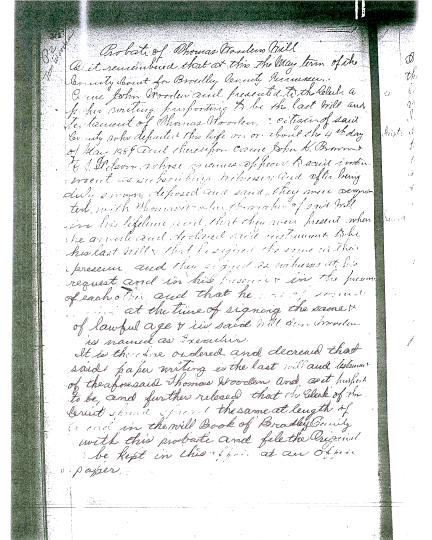 Probate of Thomas Woodens Will
As it remembered that at this the May term of the
County Court for Bradley County Tennessee.
Came John Wooden and presented to the Clerk a
paper writing purporting to be the last Will and
testament of Thomas Wooden a citizen of said
County who departed this life on or about the 4th day
of May 1859 and thereupon came John K. Brown &
whose names appear to said instru
ment as subscribing witnesses and after being
duly sworn deposed and said, they were acquain
ted with Thomas the of said Will
in his lifetime and that they were present when
he and declared said instrument to be
his last Will & that he signed the same in their
presence and they signed as witnesses at his
request and in his presence & in the presence
of each other and that he sound
at the time of signing the same &
of lawful age & in said Will John Wooden
is named as Executor.
It is therefore ordered and decreed that
said paper writing is the last will and testament
of the aforesaid Thomas Wooden and, as it purports
to be, and further that the Clerk of the
Court the same at length of
in the Will Book of Bradley County
with this probate and file the Original
be Kept in this office at an
paper